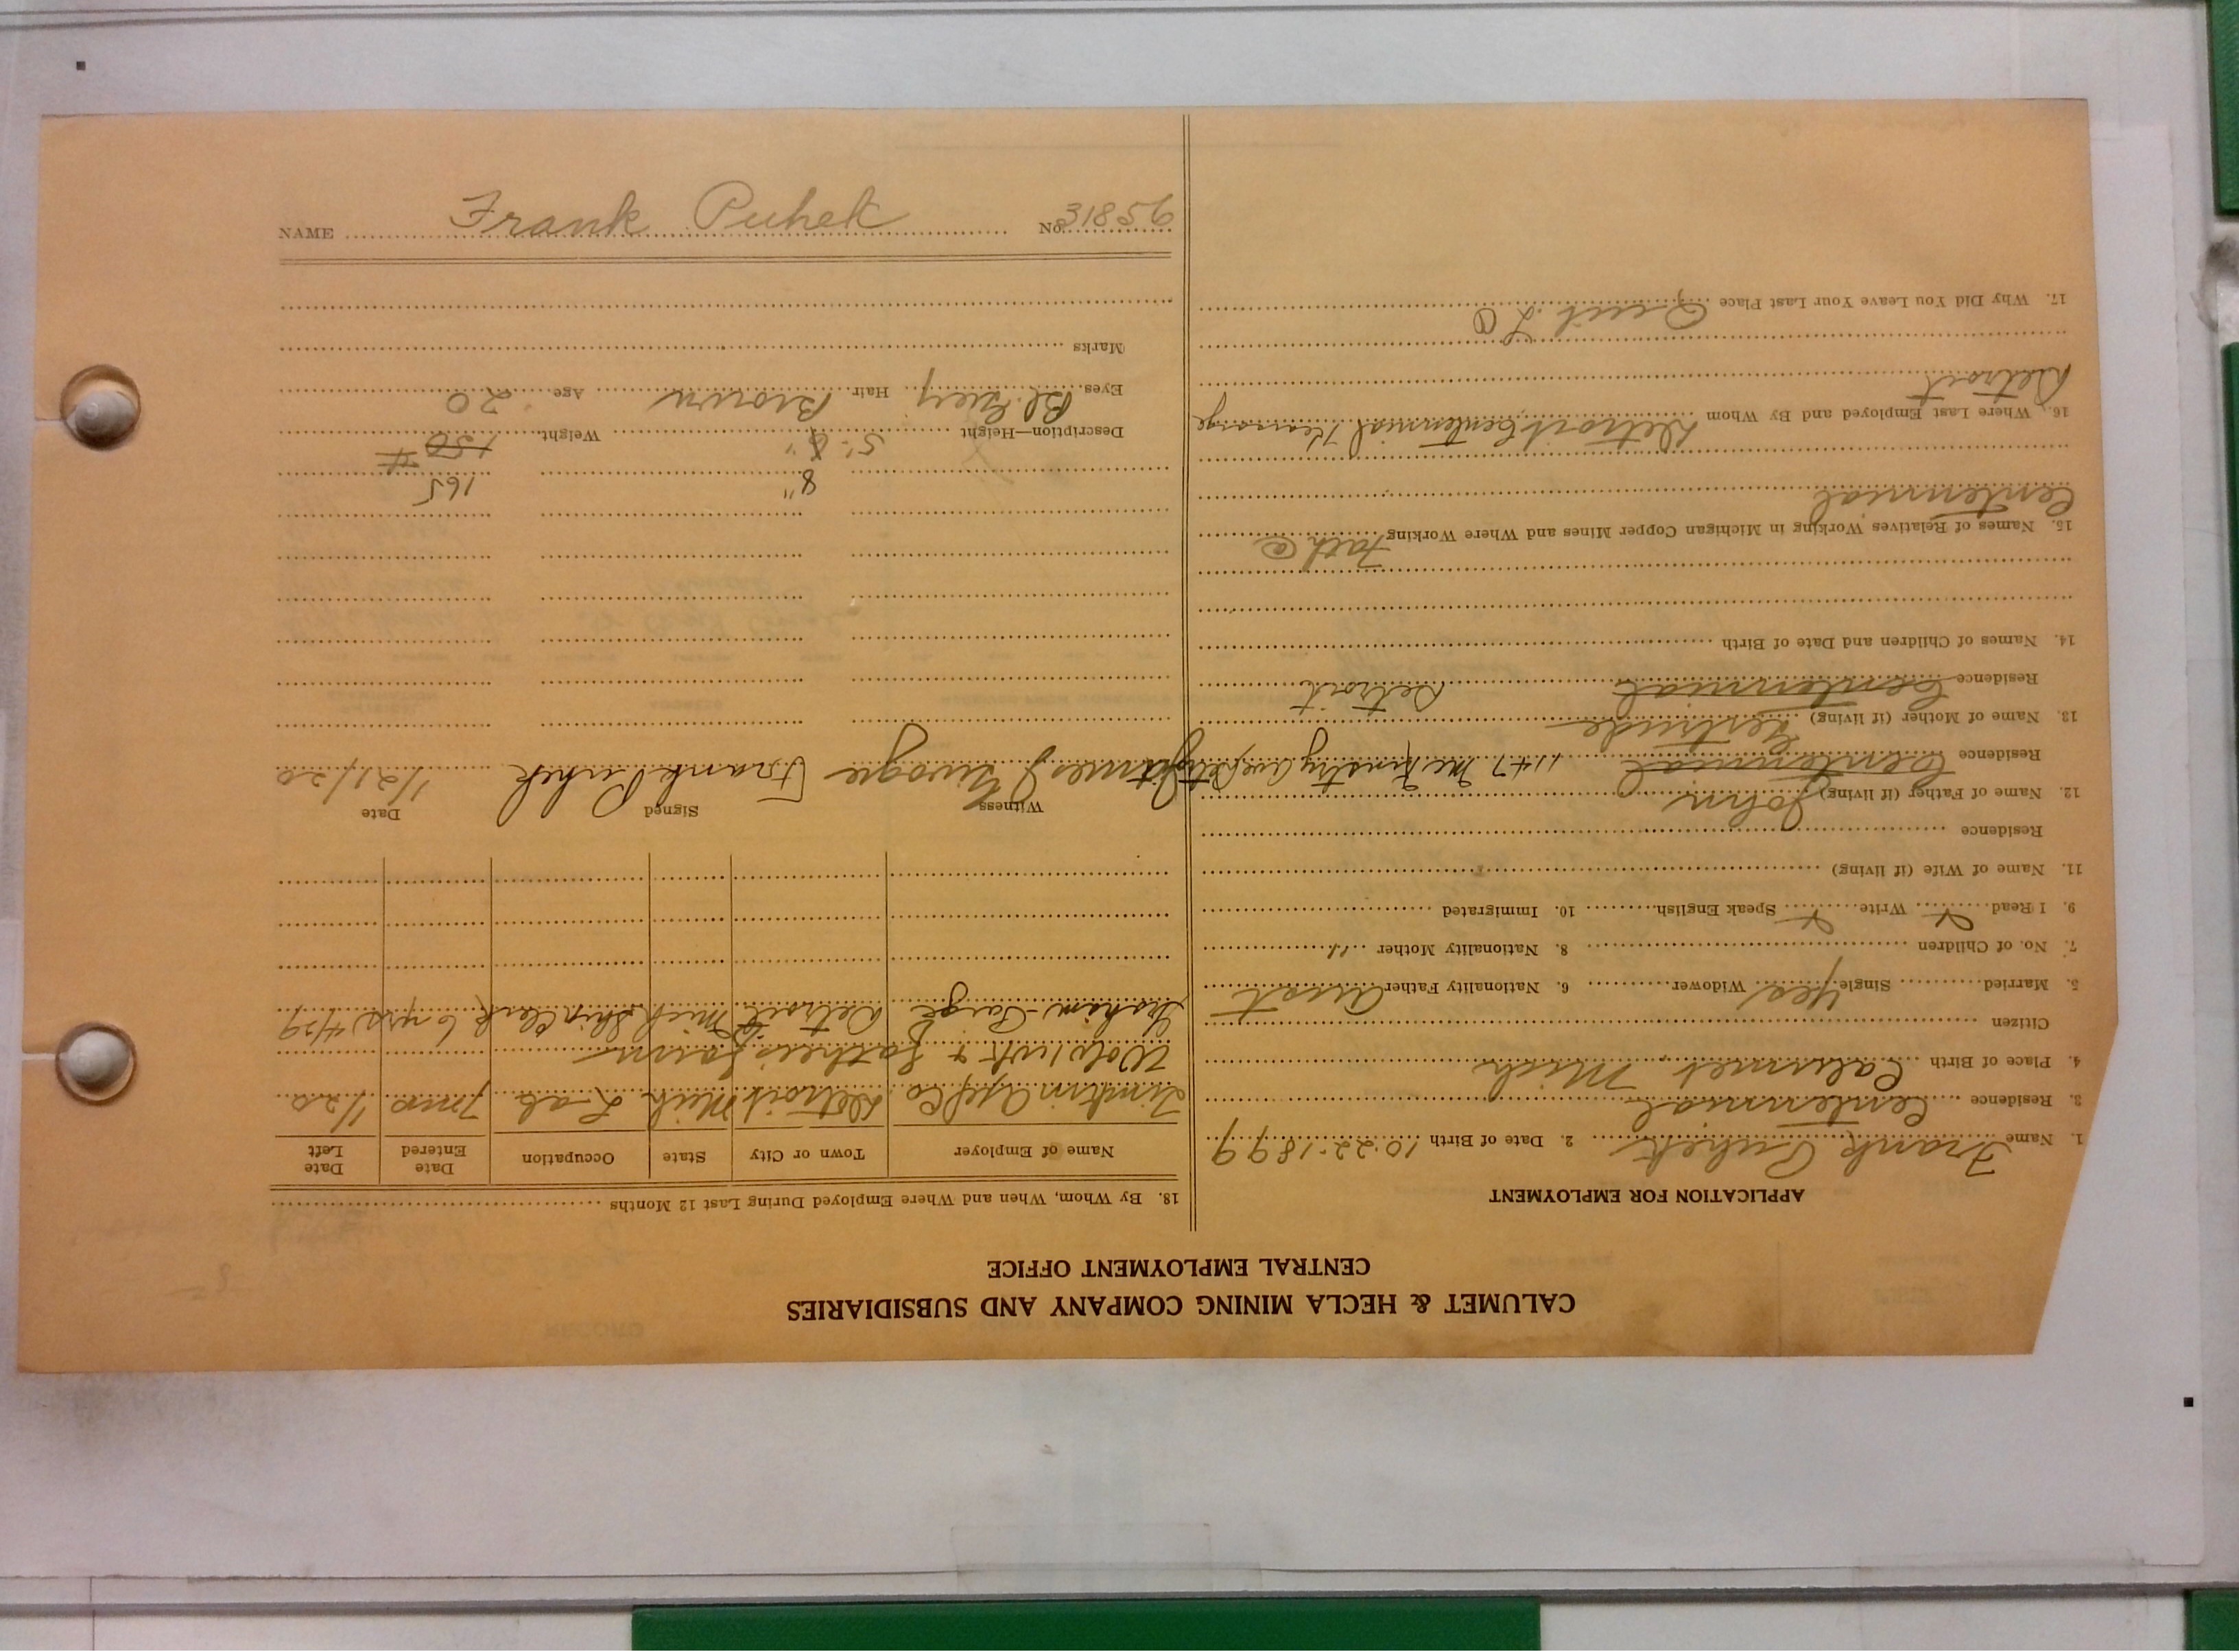 CALUMET & HECLA MINING COMPANY AND SUBSIDIARIES
CENTRAL EMPLOYMENT OFFICE
APPLICATION FOR EMPLOYMENT
1. Name Frank Puhek 2. Date of Birth 10-22-1899
3. Residence Centennial
4. Place of Birth Calumet Mich
Citizen
5. Married Single Yes Widower 6. Nationality Father Aust
7. No. of Children 8. Nationality Mother "
9. I Read Write Speak English 10. Immigrated
11. Name of Wife (if living)
Residence
12. Name of Father (if living) John
Residence Centennial 1147 McKinstry Ave Det
13. Name of Mother (if living) Gertrude
Residence Centennial Detroit
14. Names of Children and Date of Birth
15. Names of Relatives Working in Michigan Copper Mines and Where Working Fath
Centennial
16. Where Last Employed and By Whom Detroit Centennial Kearsarge
Detroit
17. Why Did You Leave Your Last Place Quit
18. By Whom, When and Where Employed During Last 12 Months
Name of Employer Town or City State Occupation Date Entered Date Left
Timken Co Detroit Mich Lab 7 mo 1/20
+ fathers farm
Graham-Paige Detroit Mich Clerk 6 yrs 4/29
Witness Signed Date
James Frank Puhek 1/21/20
8" 165
Description—Height 5' 6" Weight 150 #
Eyes Bl. Grey Hair Brown Age 20
Marks
NAME Frank Puhek No. 31856